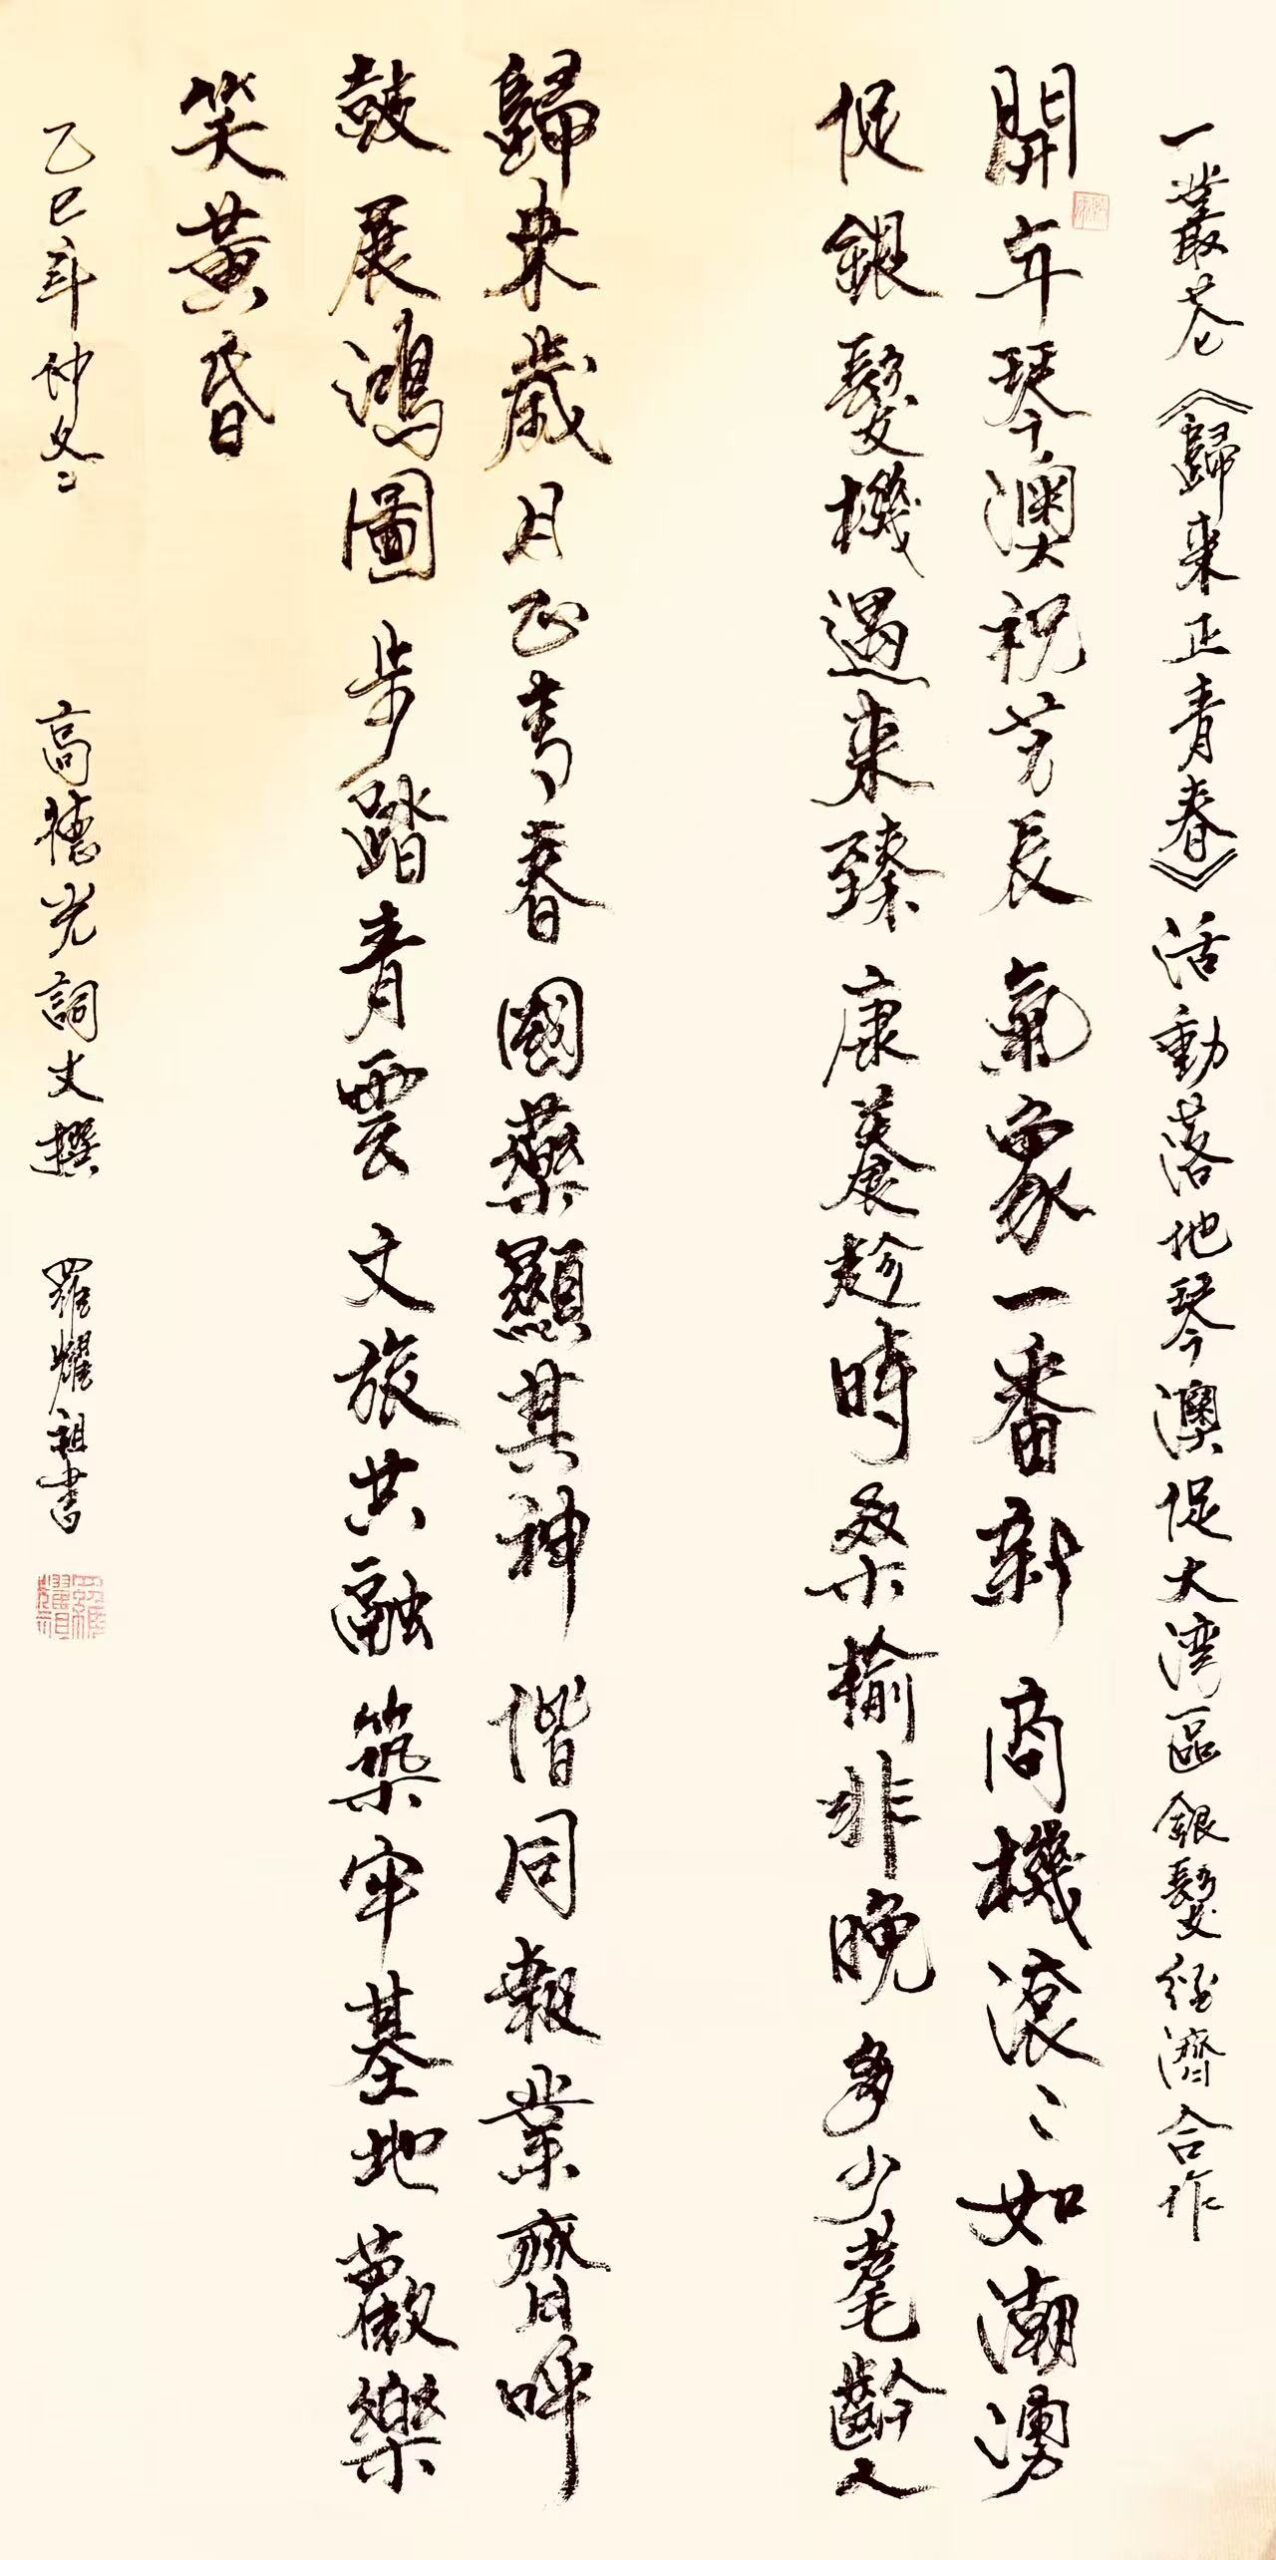 一叢花《歸來正青春》活動落地琴澳促大湾區銀髮經濟合作
開年琴澳祝芳辰 氣象一番新 商機滾〻如潮湧
促銀髮機遇來臻 康養趁時 桑榆非晚 多少耄齡人
歸來歲月正青春 國藥顯其神 偕同報業齊呼
鼓 展鴻圖 步踏青雲 文旅共融 築牢基地 歡樂
笑黃昏
乙巳年仲冬 高德光詞丈撰 羅耀祖書